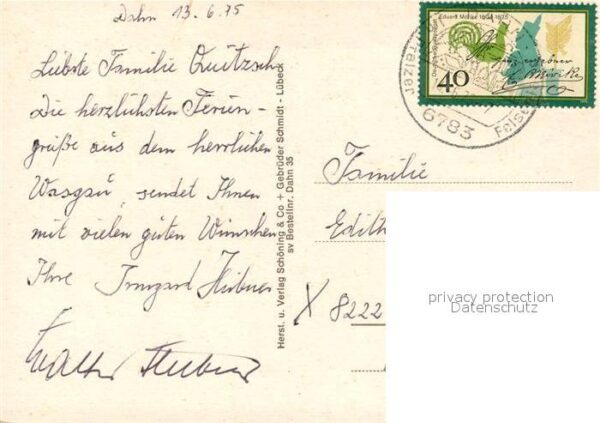 Dahn 13.6.75
Liebste Familie Quitzsch
Die herzlichsten Ferien-
grüße aus dem herrlichen
Wasgau, sendet Ihnen
mit vielen guten Wünschen
Ihre Irmgard Hübner
Walter Hübner
Herst. u. Verlag Schöning & Co + Gebrüder Schmidt - Lübeck
sv Bestellnr. Dahn 35
Eduard Mörike 1804-1875
40
E. Mörike
6783
Felsen
Familie
Edith
X 8222
privacy protection
Datenschutz